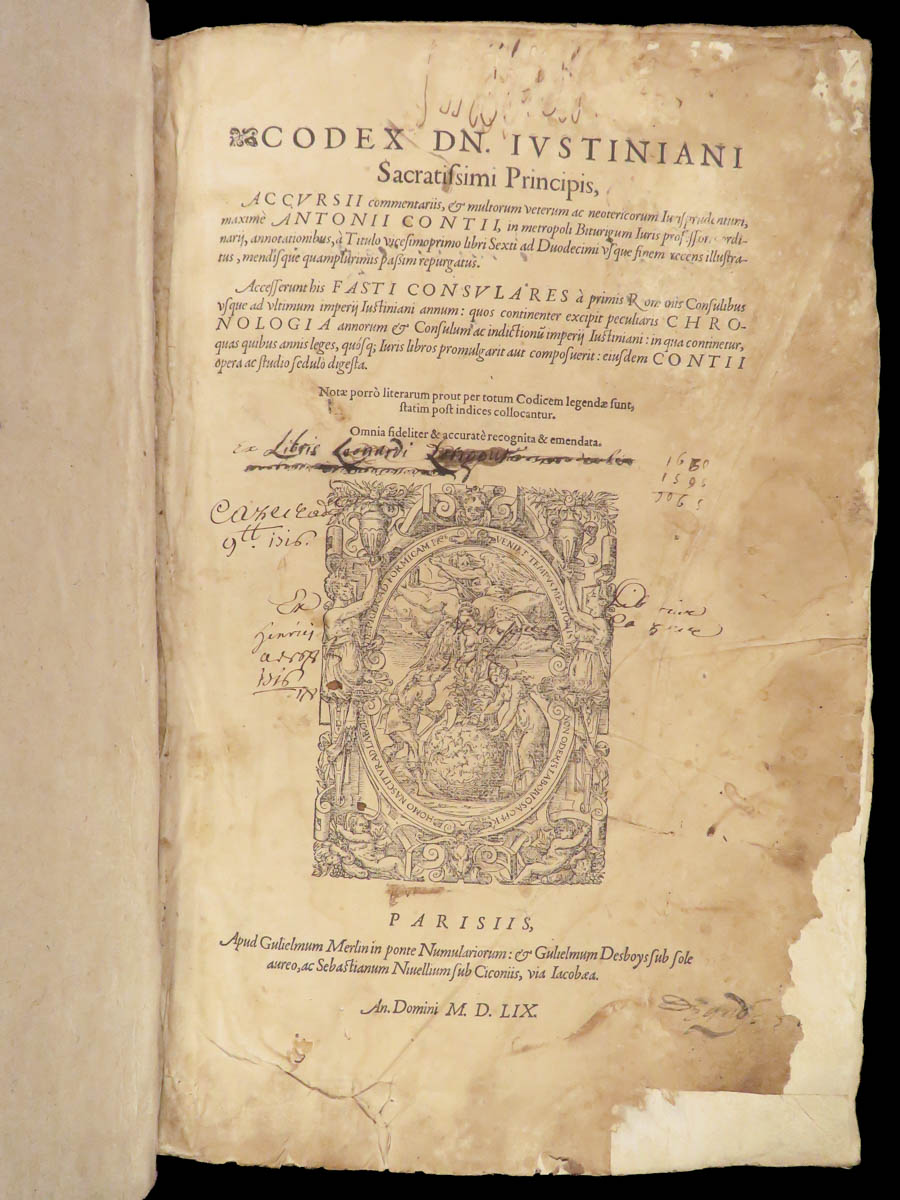 CODEX DN. IVSTINIANI
Sacratiſsimi Principis,
ACCVRSII commentariis, & multorum veterum ac neotericorum Iuriſprudentum,
maximè ANTONII CONTII, in metropoli Biturigum Iuris profeſſoris ordi-
narij, annotationibus, à Titulo viceſimoprimo libri Sexti ad Duodecimi vſque finem recens illuſtra-
tus, mendíſque quamplurimis paſsim repurgatus.
Acceſſerunt his FASTI CONSVLARES à primis Romanis Conſulibus
vſque ad vltimum imperij Iuſtiniani annum: quos continenter excipit peculiaris CHRO-
NOLOGIA annorum & Conſulum ac indictionũ imperij Iuſtiniani: in qua continetur,
quas quibus annis leges, quóſq; Iuris libros promulgarit aut compoſuerit: eiuſdem CONTII
opera ac ſtudio ſedulò digeſta.
Notæ porrò literarum prout per totum Codicem legendæ ſunt,
ſtatim poſt indices collocantur.
Omnia fideliter & accuratè recognita & emendata.
ex Libris Leonardi
VENIET TEMPVS MESSIONIS
NON ODERIS LABORIOSA OPERA
HOMO NASCITVR AD LABOREM
PIGER AD FORMICAM
Ex
PARISIIS,
Apud Gulielmum Merlin in ponte Numulariorum: & Gulielmum Desboys ſub ſole
aureo, ac Sebaſtianum Niuellium ſub Ciconiis, via Iacobæa.
An. Domini M. D. LIX.